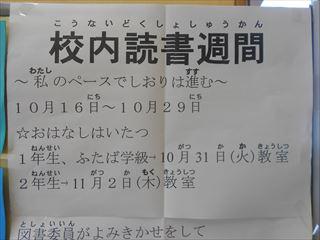 こうないどくしょしゅうかん
校内読書週間
わたし すす
～私のペースでしおりは進む～
にち にち
10月16日～10月29日
☆おはなしはいたつ
ねんせい がっきゅう がつ にち か きょうしつ
1年生、ふたば学級→10月31日(火)教室
ねんせい がつ か もく きょうしつ
2年生→11月2日(木)教室
としょいいん
図書委員がよみきかせをして